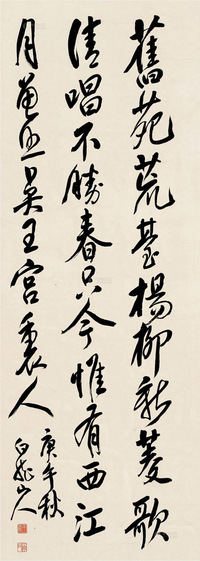 舊苑荒臺楊柳新菱歌
清唱不勝春只今惟有西江
月曾照吳王宮裏人
庚午秋
白蕉山人